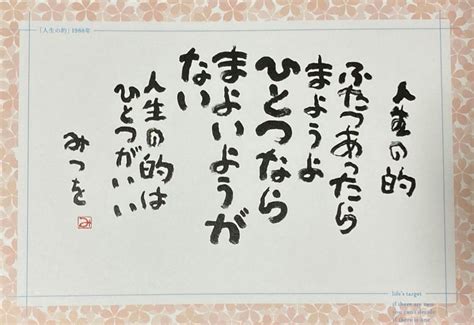 「人生の的」1988年
人生の的
ふたつあったら
まようよ
ひとつなら
まよいようが
ない
人生の的は
ひとつがいい
みつを
み
life's target
if there are two